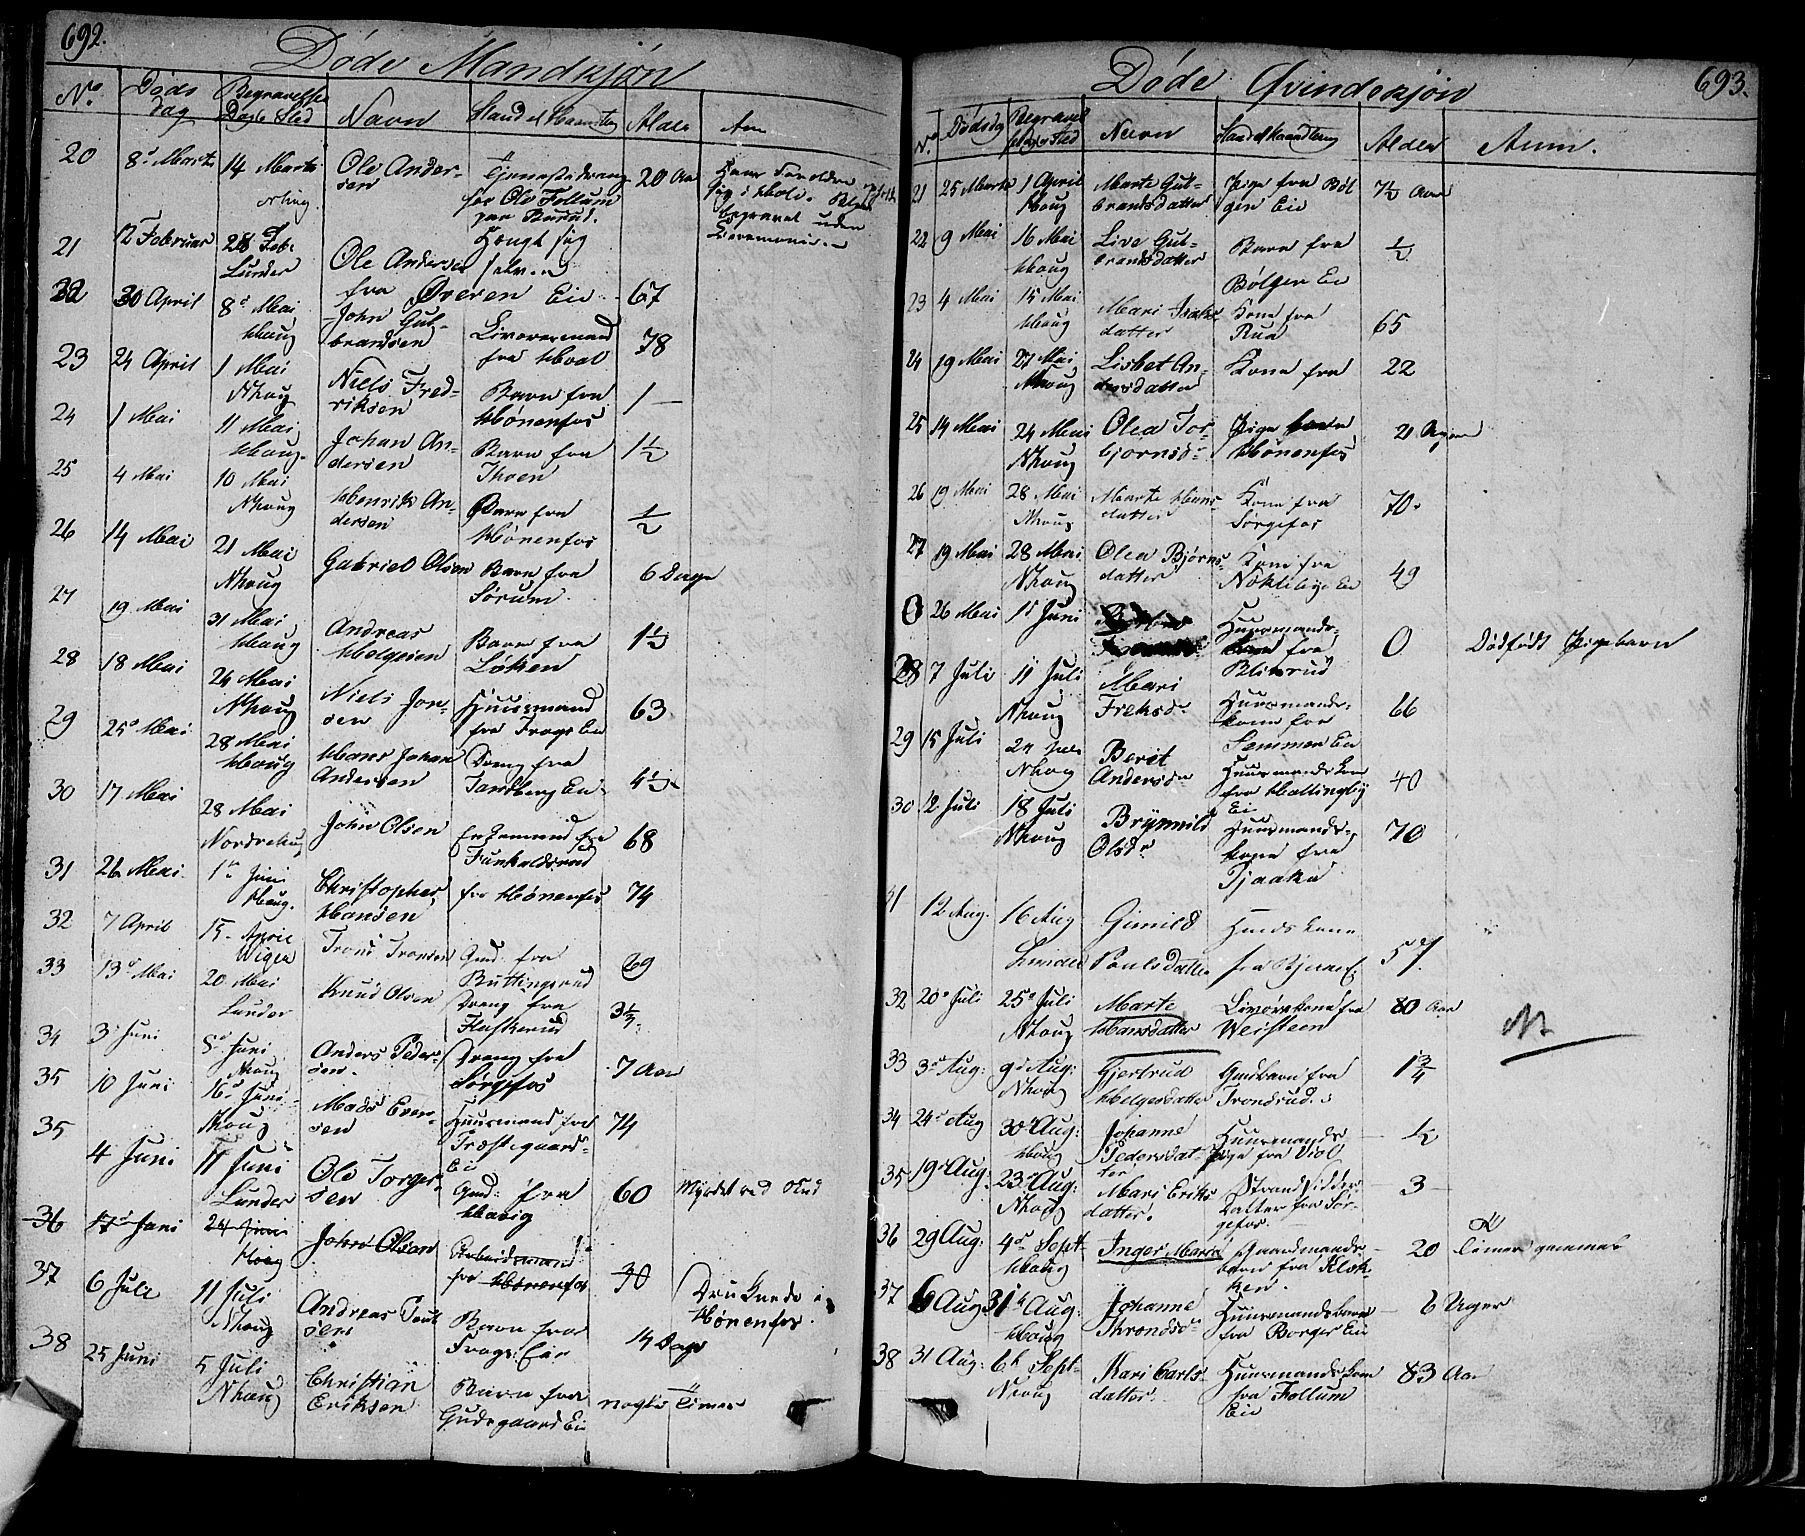 692.
Døde Mandkjøn
No. Døds dag Begravelses Dag & Sted Navn Stand et Haandtering Alder Anm
20 8de Marts 14 Marts NHoug Ole Andersen Tjenestedreng fra Ole Follum paa Berud. Hængt sig selv 20 Aar Hans Forældre begravet uden Ceremonie
21 12 Februar 28 Feb: Lunder Ole Anderse fra Øveren Eie 67
22 30 April 8de Mai Houg John Gulbrandsen Livøresmand fra Hval 78
23 24 April 1 Mai NHoug Niels Fredriksen Barn fra Hønenfos 1
24 1 Mai 11 Mai Houg Johan Andersen Barn fra Thoen 1½
25 4 Mai 10 Mai NHoug Henrik Andersen Barn fra Hønenfos ½
26 14 Mai 21 Mai NHoug Gabriel Olsen Barn fra Sørum 6 Dage
27 19 Mai 31 Mai Houg Andreas Holgeien Barn fra Løken 1½
28 18 Mai 24 Mai NHoug Niels Jonsen Huusmand fra Frogs Eie 63
29 25de Mai 28 Mai Houg Hans Johan Andersen Dreng fra Tandberg Ei 4½
30 17 Mai 28 Mai Nordrehoug John Olsen Enkemand fra 68
31 26 Mai 1te Juni Houg. Christopher Hansen fra Hønenfos 74
32 7 April 15 April Wiger Trond Tronsen Gmd fra Buttingsrud 69
33 13de Mai 20 Mai Lunder Knud Olsen Dreng fra Flaskerud 3½
34 3 Juni 8de Juni NHoug Anders Pedersen Dreng fra Sørgefos 7 Aar
35 10 Juni 16de Juni NHoug Mads Evensen Huusmand fra Træstegaards Ei 74
35 4 Juni 11 Juni Lunder Ole Torgersen Gmd: fra Havig 60 Myrdet ved Skud
36 17de Juni 24 Juni Houg John Olsen Arbeidsmand fra Hønenfos 30 Druknede i Hønenfos.
37 6 Juli 11 Juli NHoug Andreas Poulsen Barn fra Frogs: Eie 14 Dage
38 25 Juni 5 Juli NHoug Christian Eriksen Barn fra Gudsgaard Ei nogle Timer
693.
Døde Qvindekjøn
No. Dødsdg Begravelses Dag & Sted Navn Stand et Haandtering Alder Anm.
21 25 Marts 1 April Houg Marte Gulbrandsdatter Pige fra Bølgen Eie 7½ Aar
22 9 Mai 16 Mai Houg Live Gulbrandsdatter Barn fra Bølgen Ei ½
23 4 Mai 15 Mai Houg Mari Isaksdatter Kone fra Rua 65
24 19 Mai 27 Mai NHoug Lisbet Andersdatter Kone fra 22
25 14 Mai 24 Mai NHoug Olea Torbjørnsdr Pige Hønenfos 21 Uger
26 19 Mai 28 Mai NHoug Marte Hansdatter Kone fra Sørgefos 70.
27 19 Mai 28 Mai NHoug Olea Bjørnsdatter Kone fra Nokleby Ei 49
0 26 Mai 11 Juni Huusmands fra Blixrud 0 Dødfødt Pigebarn
28 7 Juli 11 Juli NHoug Mari Freksdr Huusmandskone fra Semmen Ei 66
29 15 Juli 24 Juli NHoug Berit Andersdr Huusmandskone fra Hallingby Ei 40
30 12 Juli 18 Juli NHoug Brynnild Olsdr Huusmandskone fra Tjaaka 70
31 12 Aug. 16 Aug Lunder Gunild Poulsdatter Huusds kone fra 57
32 20de Juli 25de Juli NHoug Marte Hansdatter Livørekone fra Weisteen 80 Aar
33 3de Aug: 9de Aug: NHoug Gjertrud Helgesdatter Gmdbarn fra Trondrud. 1¾
34 24de Aug 30 Aug: Houg Johanne Pedersdatter Huusmands pige fra Viol ½
35 19de Aug. 23de Aug: NHoug Mari Eriksdatter. Strandsidder datter fra Sørgefos. 3
36 29 Aug: 4de Sept Houg Inger Marie Gaardmands barn fra Klokken. 20 Timer gammel
37 6 Aug: 31te Aug: Houg Johanne Throndsdr Huusmandsbarn fra Borger Ei 6 Uger
38 31 Aug: 6te Sept NHoug Kari Carlsdatter. Huusmandskone fra Follum Eie 83 Aar